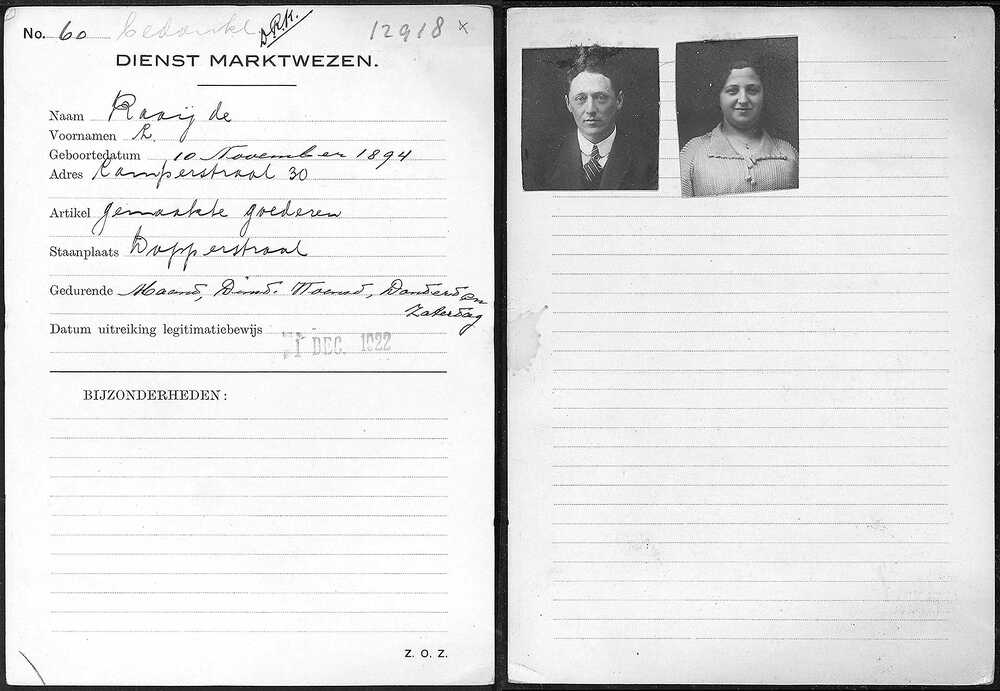 No. 60 bedankt D.R.K. 12918 x
DIENST MARKTWEZEN.
Naam Raaij de
Voornamen
Geboortedatum 10 November 1894
Adres Camperstraat 30
Artikel gemaakte goederen
Staanplaats Dapperstraat
Gedurende Maand, Dinsd. Woensd, Donderd en
Zaterdag
Datum uitreiking legitimatiebewijs
1 DEC. 1922
BIJZONDERHEDEN:
Z. O. Z.